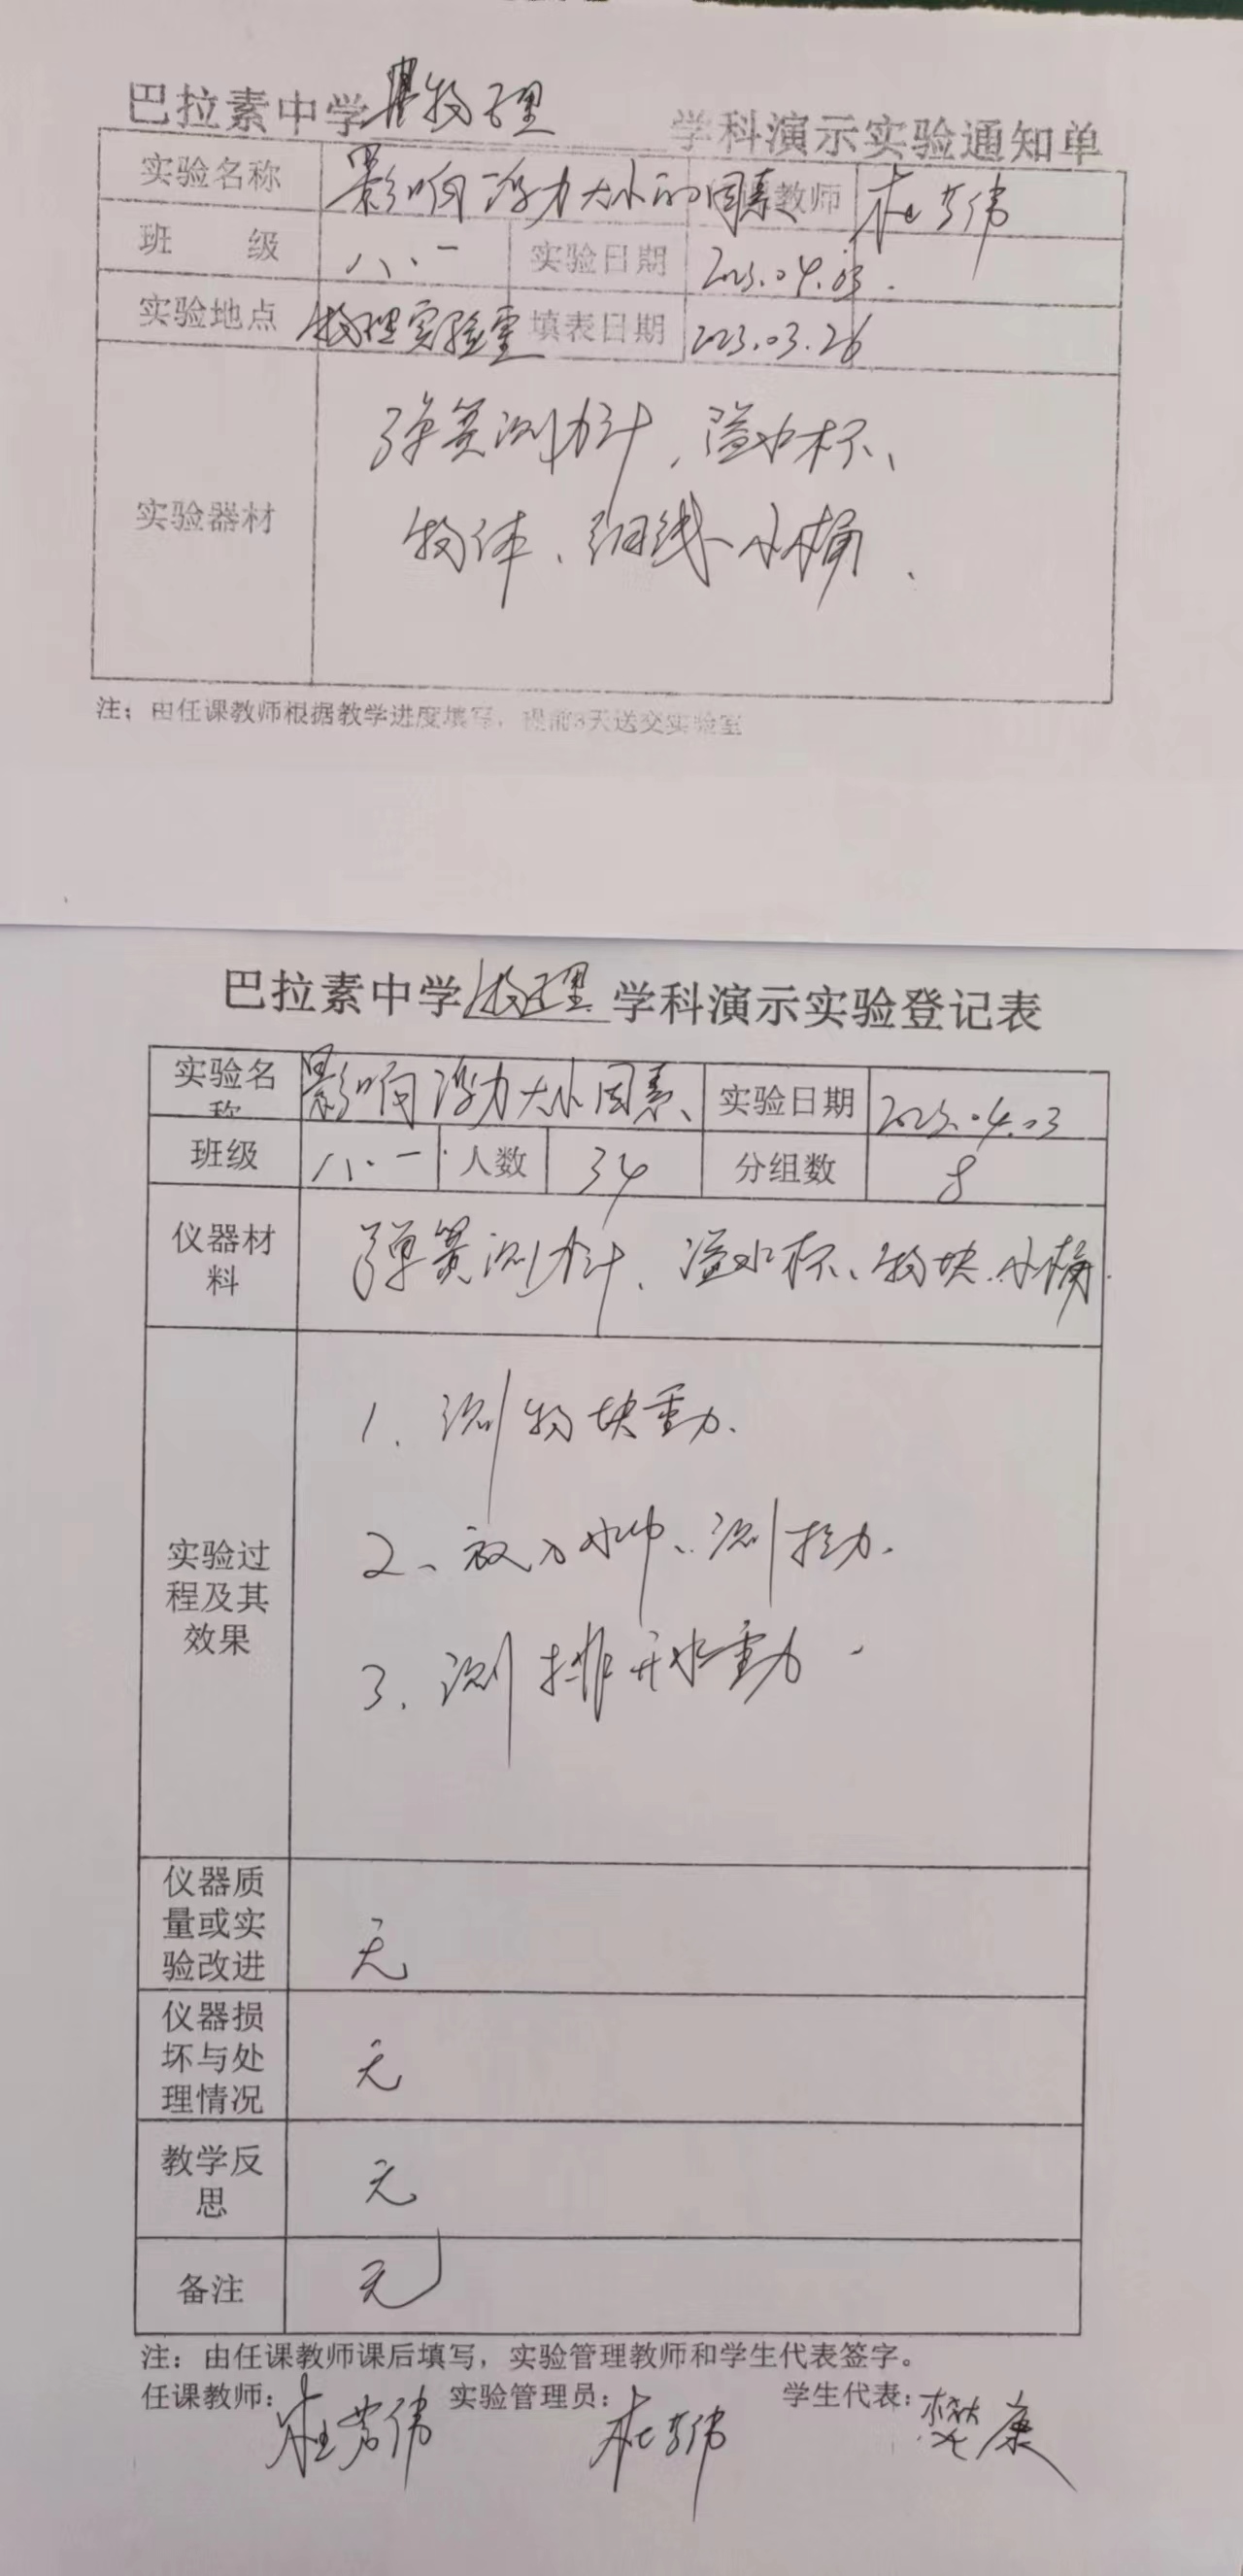 巴拉素中学物理学科演示实验通知单
实验名称 影响浮力大小的因素 任课教师 杜芳伟
班 级 八.一 实验日期 2023.04.03.
实验地点 物理实验室 填表日期 2023.03.26
实验器材 弹簧测力计、溢水杯、
物体、细线、小桶、
注：由任课教师根据教学进度填写，提前3天送交实验室
巴拉素中学物理学科演示实验登记表
实验名称 影响浮力大小因素 实验日期 2023.04.03
班级 八.一 人数 34 分组数 8
仪器材料 弹簧测力计、溢水杯、物块、小桶.
实验过程及其效果
1、测物块重力.
2、放入水中、测拉力.
3、测排开水重力.
仪器质量或实验改进 无
仪器损坏与处理情况 无
教学反思 无
备注 无
注：由任课教师课后填写，实验管理教师和学生代表签字。
任课教师：杜芳伟 实验管理员：杜芳伟 学生代表：樊康